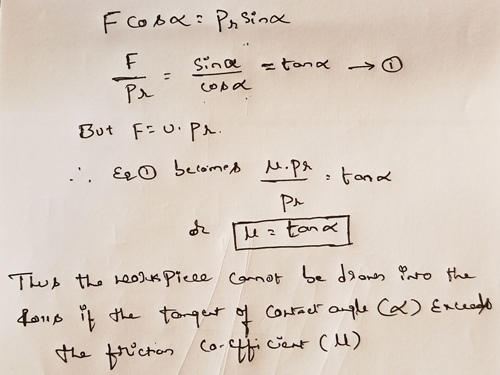 F cosα = Pr sinα
F/Pr = sinα/cosα = tanα → ①
But F = μ. Pr.
∴ Eq ① becomes μ.Pr/Pr = tanα
or μ = tanα
Thus the workpiece cannot be drawn into the
rolls if the tangent of contact angle (α) Exceeds
the friction co-efficient (μ)